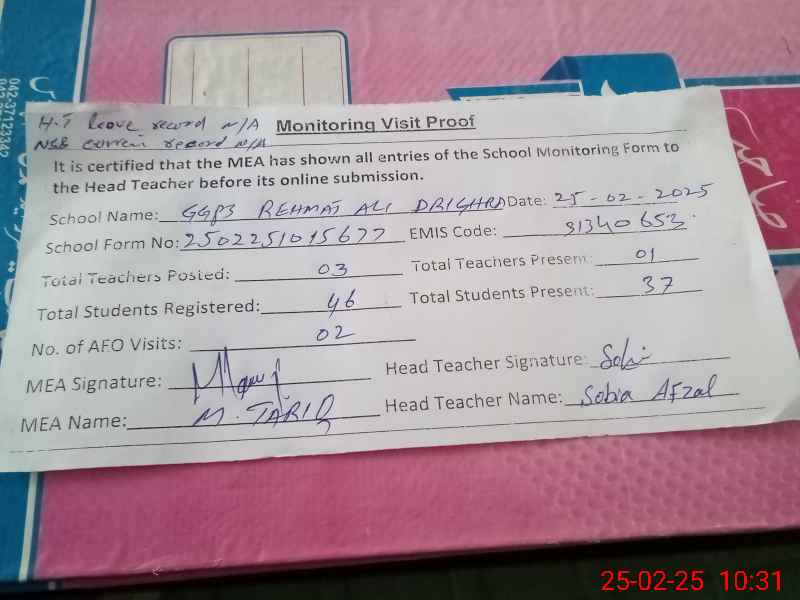 H.T leave record N/A
NSB curren record N/A
Monitoring Visit Proof
It is certified that the MEA has shown all entries of the School Monitoring Form to
the Head Teacher before its online submission.
School Name: GGPS REHMAT ALI DRIGHRA Date: 25-02-2025
School Form No: 2502251015677 EMIS Code: 31340653
Total Teachers Posted: 03 Total Teachers Present: 01
Total Students Registered: 46 Total Students Present: 37
No. of AEO Visits: 02
MEA Signature: Head Teacher Signature: Sobi
MEA Name: M. TARIQ Head Teacher Name: Sobia Afzal
042-37123342
25-02-25 10:31